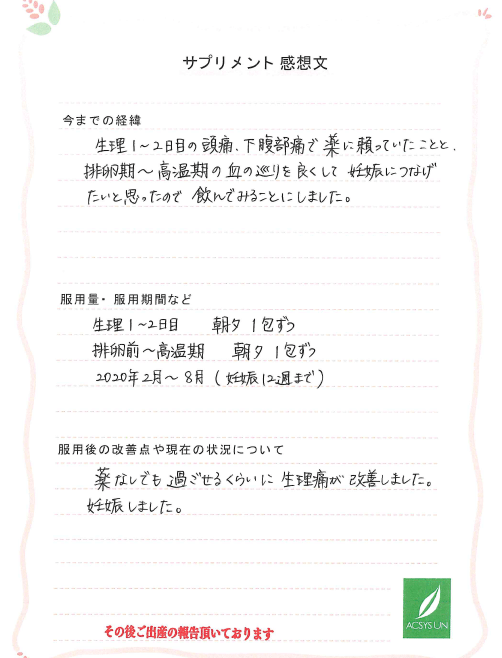 サプリメント 感想文
今までの経緯
生理1~2日目の頭痛、下腹部痛で薬に頼っていたことと、
排卵期~高温期の血の巡りを良くして 妊娠につなげ
たいと思ったので 飲んでみることにしました。
服用量・服用期間など
生理1~2日目 朝夕 1包ずつ
排卵前~高温期 朝夕 1包ずつ
2020年2月~8月 (妊娠12週まで)
服用後の改善点や現在の状況について
薬なしでも 過ごせるくらいに 生理痛が 改善しました。
妊娠しました。
ACSYS UN
その後ご出産の報告頂いております